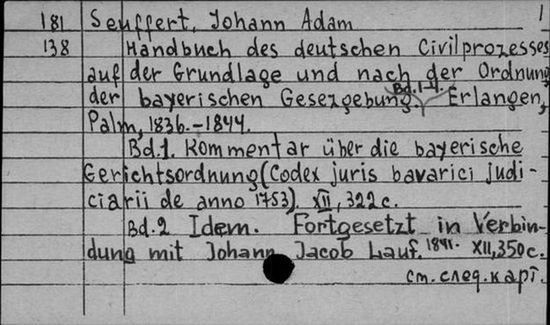 181 Seuffert, Johann Adam 1
138 Handbuch des deutschen Civilprozesses
auf der Grundlage und nach der Ordnung
der bayerischen Gesezgebung Bd.1-4. Erlangen,
Palm, 1836.-1844.
Bd.1. Kommentar über die bayerische
Gerichtsordnung (Codex juris bavarici judi-
ciarii de anno 1753). XII, 322 c.
Bd.2 Idem. Fortgesetzt in Verbin-
dung mit Johann Jacob Lauf. 1841. XII, 350 c.
см. след. карт.